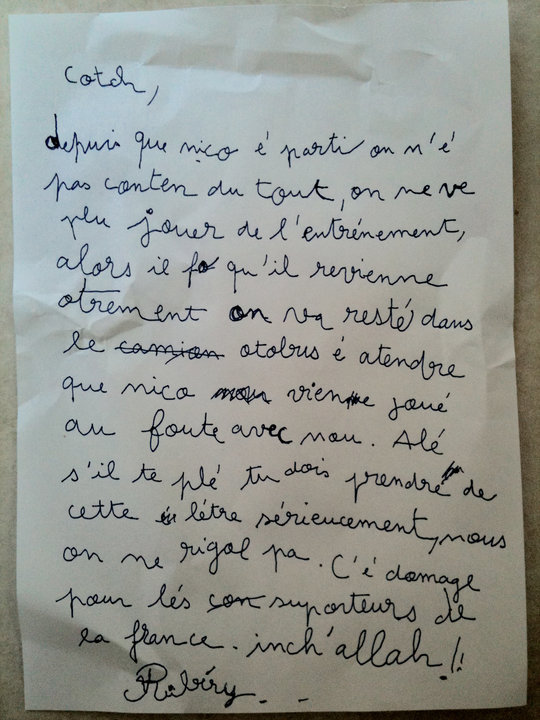 Cotch,
depuis que nico é parti on n'é
pas conten du tout, on ne ve
plu jouer de l'entrénement,
alors il fo qu'il revienne
otrement on va resté dans
le camion otobus é atendre
que nico nou vienne joué
au foute avec nou. Alé
s'il te plé tu dois prendre de
cette létre sérieucement, nous
on ne rigol pa. C'é domage
pour lés con suporteurs de
la france. inch'allah!!
Ribéry...